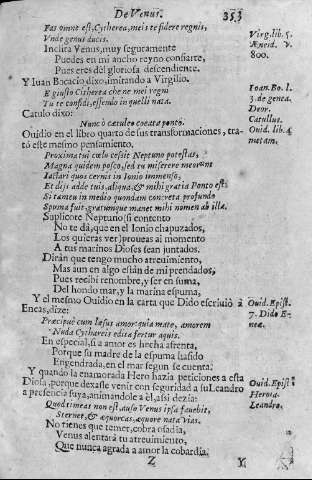 De Venus. 353
Fas omne est, Cytherea, meis te fidere regnis,
Vnde genus ducis.
Inclita Venus, muy seguramente
Puedes en mi ancho reyno confiarte,
Pues eres del gloriosa descendiente.
Y Iuan Bocacio dixo, imitando a Virgilio.
E giusto Citherea che ne mei regni
Tu te confidi, essendo in quelli nata.
Catulo dixo:
Nunc ò cæruleo creata ponto.
Ouidio en el libro quarto de sus transformaciones, tra-
tó este mesmo pensamiento.
Proxima tui cœlo cessit Neptuno potestas,
Magna quidem posco, sed tu miserere meorum
Iactari quos cernis in Ionio immenso,
Et dijs adde tuis, aliqua & mihi gratia Ponto est:
Si tamen in medio quondam concreta profundo
Spuma fui, gratumque manet mihi nomen ab illa.
Suplicote Neptuno si contento
No te dá, que en el Ionio chapuzados,
Los quieras ver) proueas al momento
A tus marinos Dioses sean juntados.
Diràn que tengo mucho atreuimiento,
Mas aun en algo estàn de mi prendados,
Pues recibi renombre, y ser en suma,
Del hondo mar, y la marina espuma,
Y el mesmo Ouidio en la carta que Dido escriuiò a
Eneas, dize:
Præcipuè cum læsus amor: quia mater amorum
Nuda Cythereis edita fertur aquis.
En especial, si a amor es hecha afrenta,
Porque su madre de la espuma hasido
Engendrada, en el mar segun se cuenta.
Y quando la enamorada Hero hazia peticiones a esta
Diosa, porque dexasse venir con seguridad a su Leandro
a presencia suya, animandole a èl, assi dezia:
Quod timeas non est, auso Venus ipsa fauebit,
Sternet, & æquoreas, æquore nata vias.
No tienes que temer, cobra osadia,
Venus alentarà tu atreuimiento,
Que nunca agrada a amor la cobardia.
Z Y,
Virg. lib. 5.
Æneid. v.
800.
Ioan. Bo. l.
3. de genea.
Deor.
Catullus.
Ouid. lib. 4
metam.
Ouid. Epist.
7. Dido E-
neæ.
Ouid. Epist
Herois
Leandro.